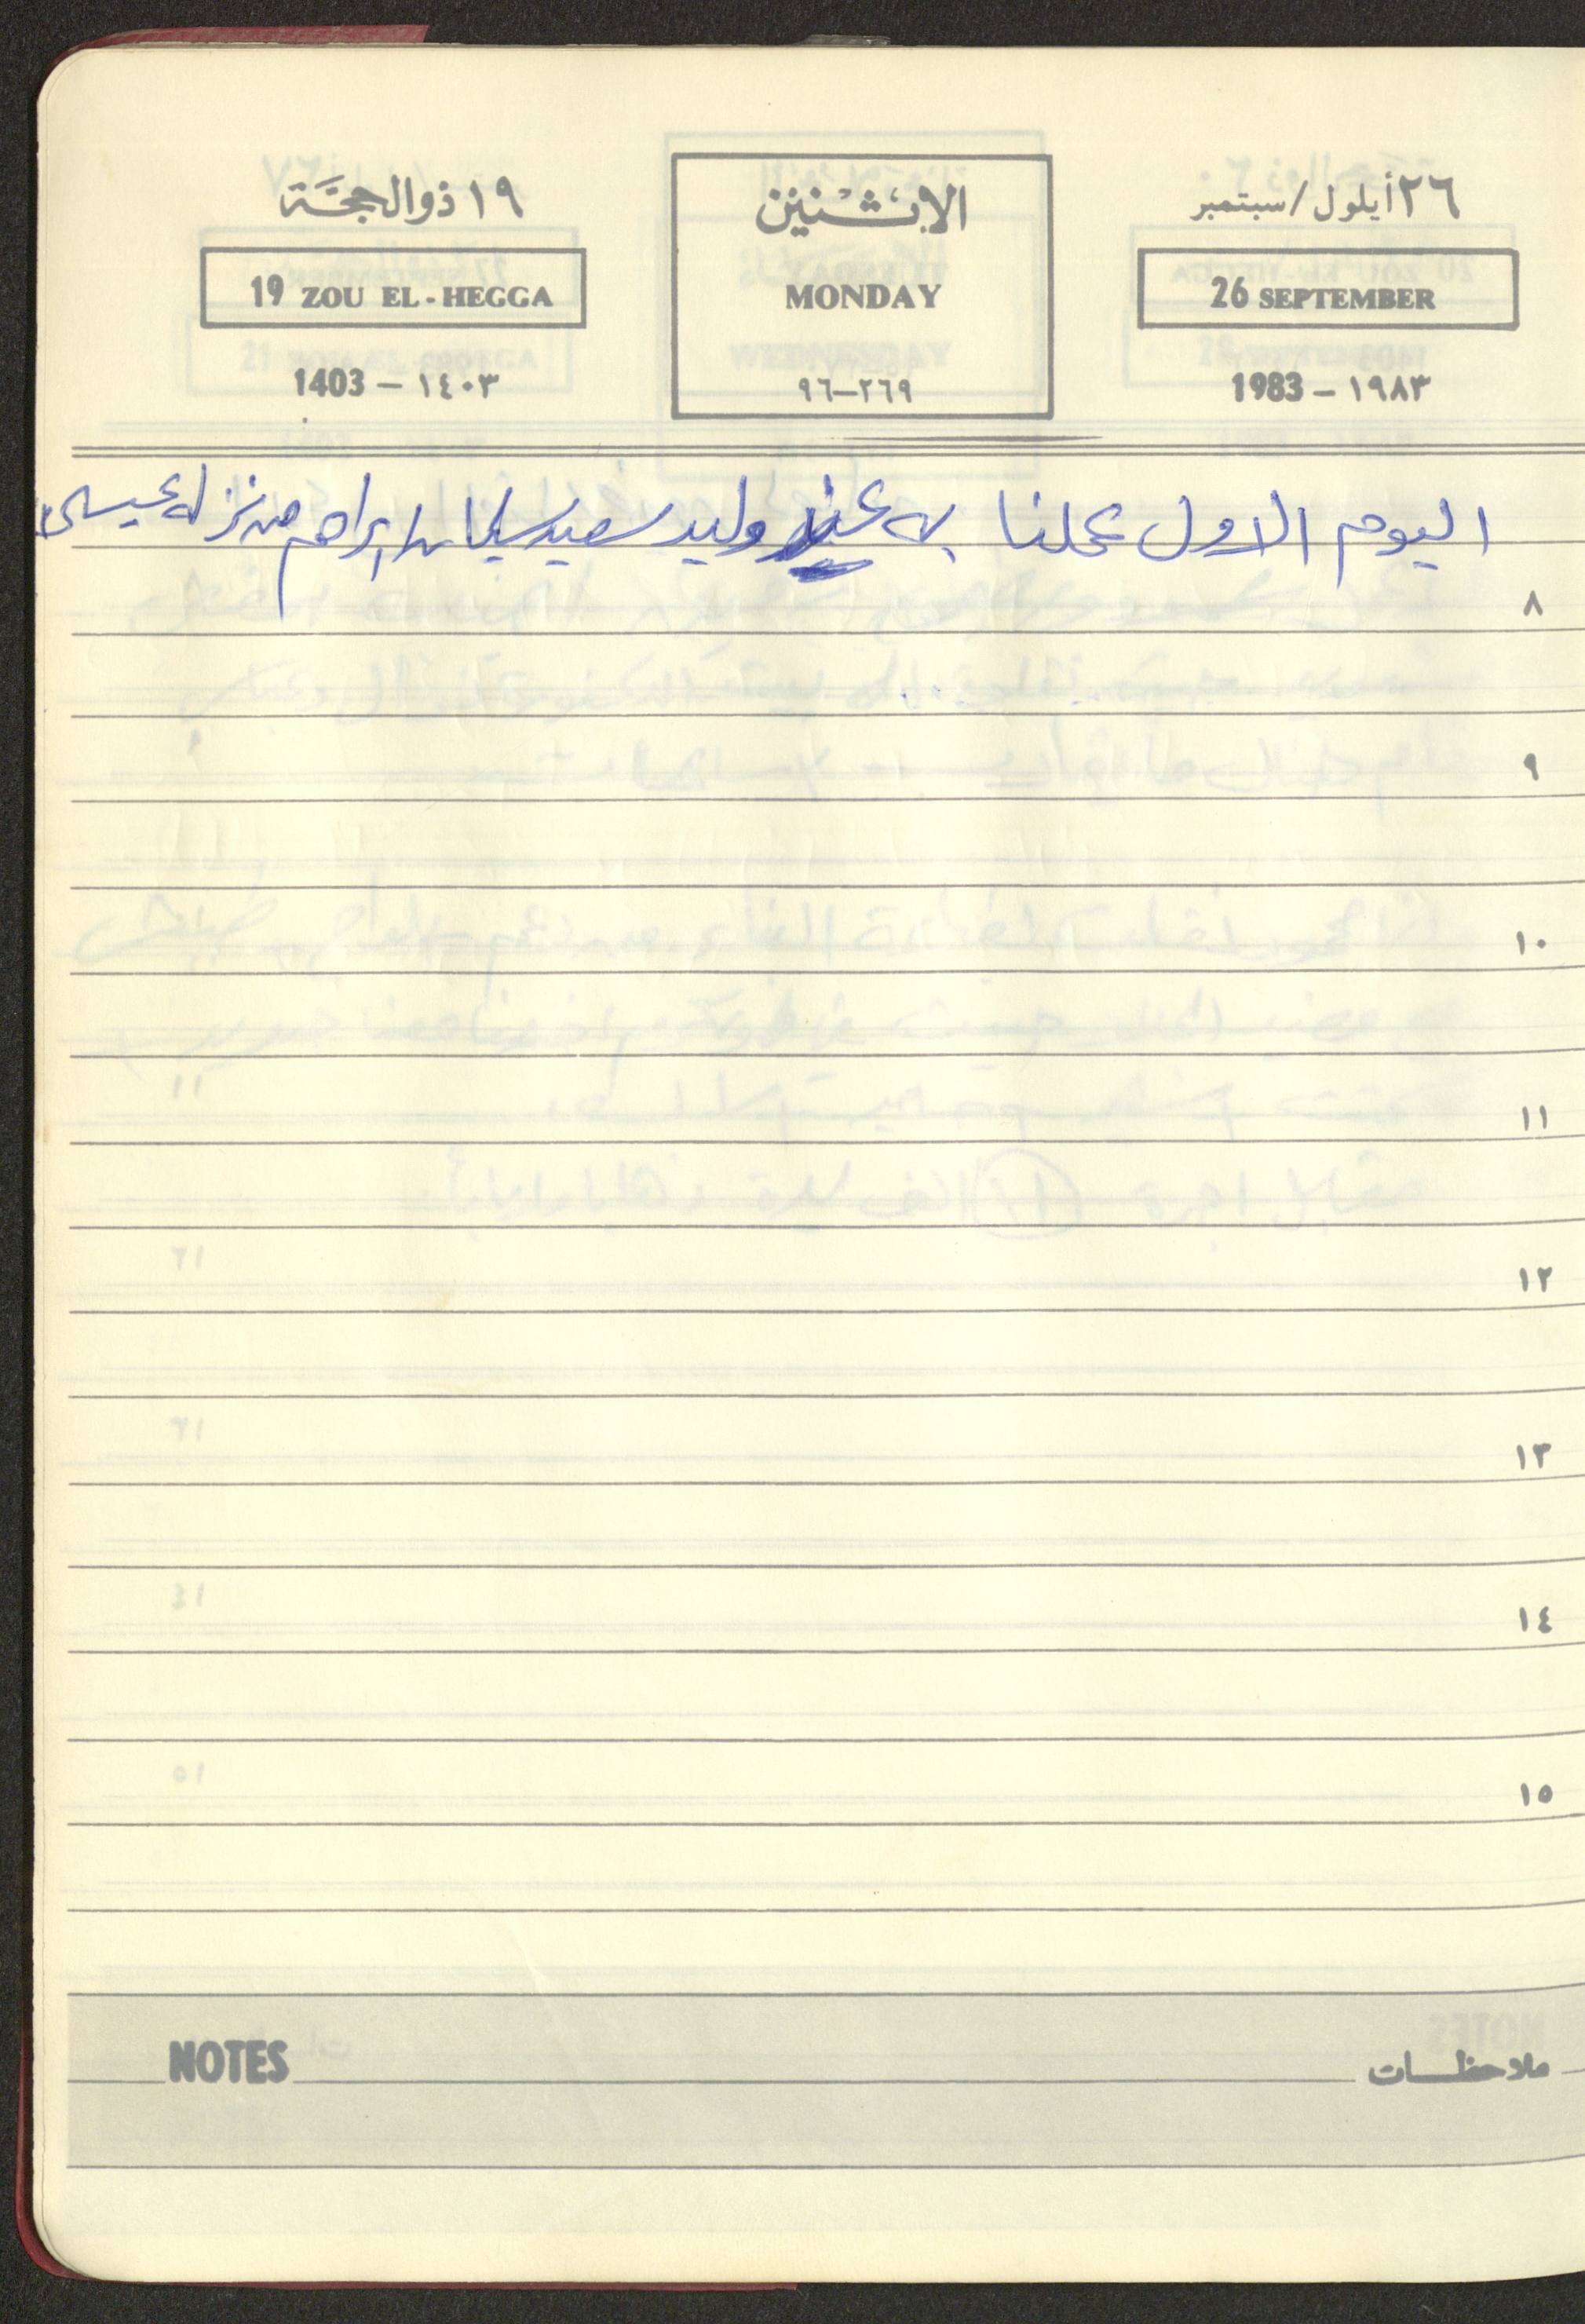 ٢٦ أيلول / سبتمبر الاثنين ١٩ ذو الحجة
26 SEPTEMBER MONDAY 19 ZOU EL-HEGGA
1983 – ١٩٨٣ ٩٦–٢٦٩ 1403 – ١٤٠٣
اليوم الاول عملنا به عند وليد سعيد سليمان ابراهيم من نزلة عيسى
٨
٩
١٠
١١
١٢
١٣
١٤
١٥
ملاحظات NOTES